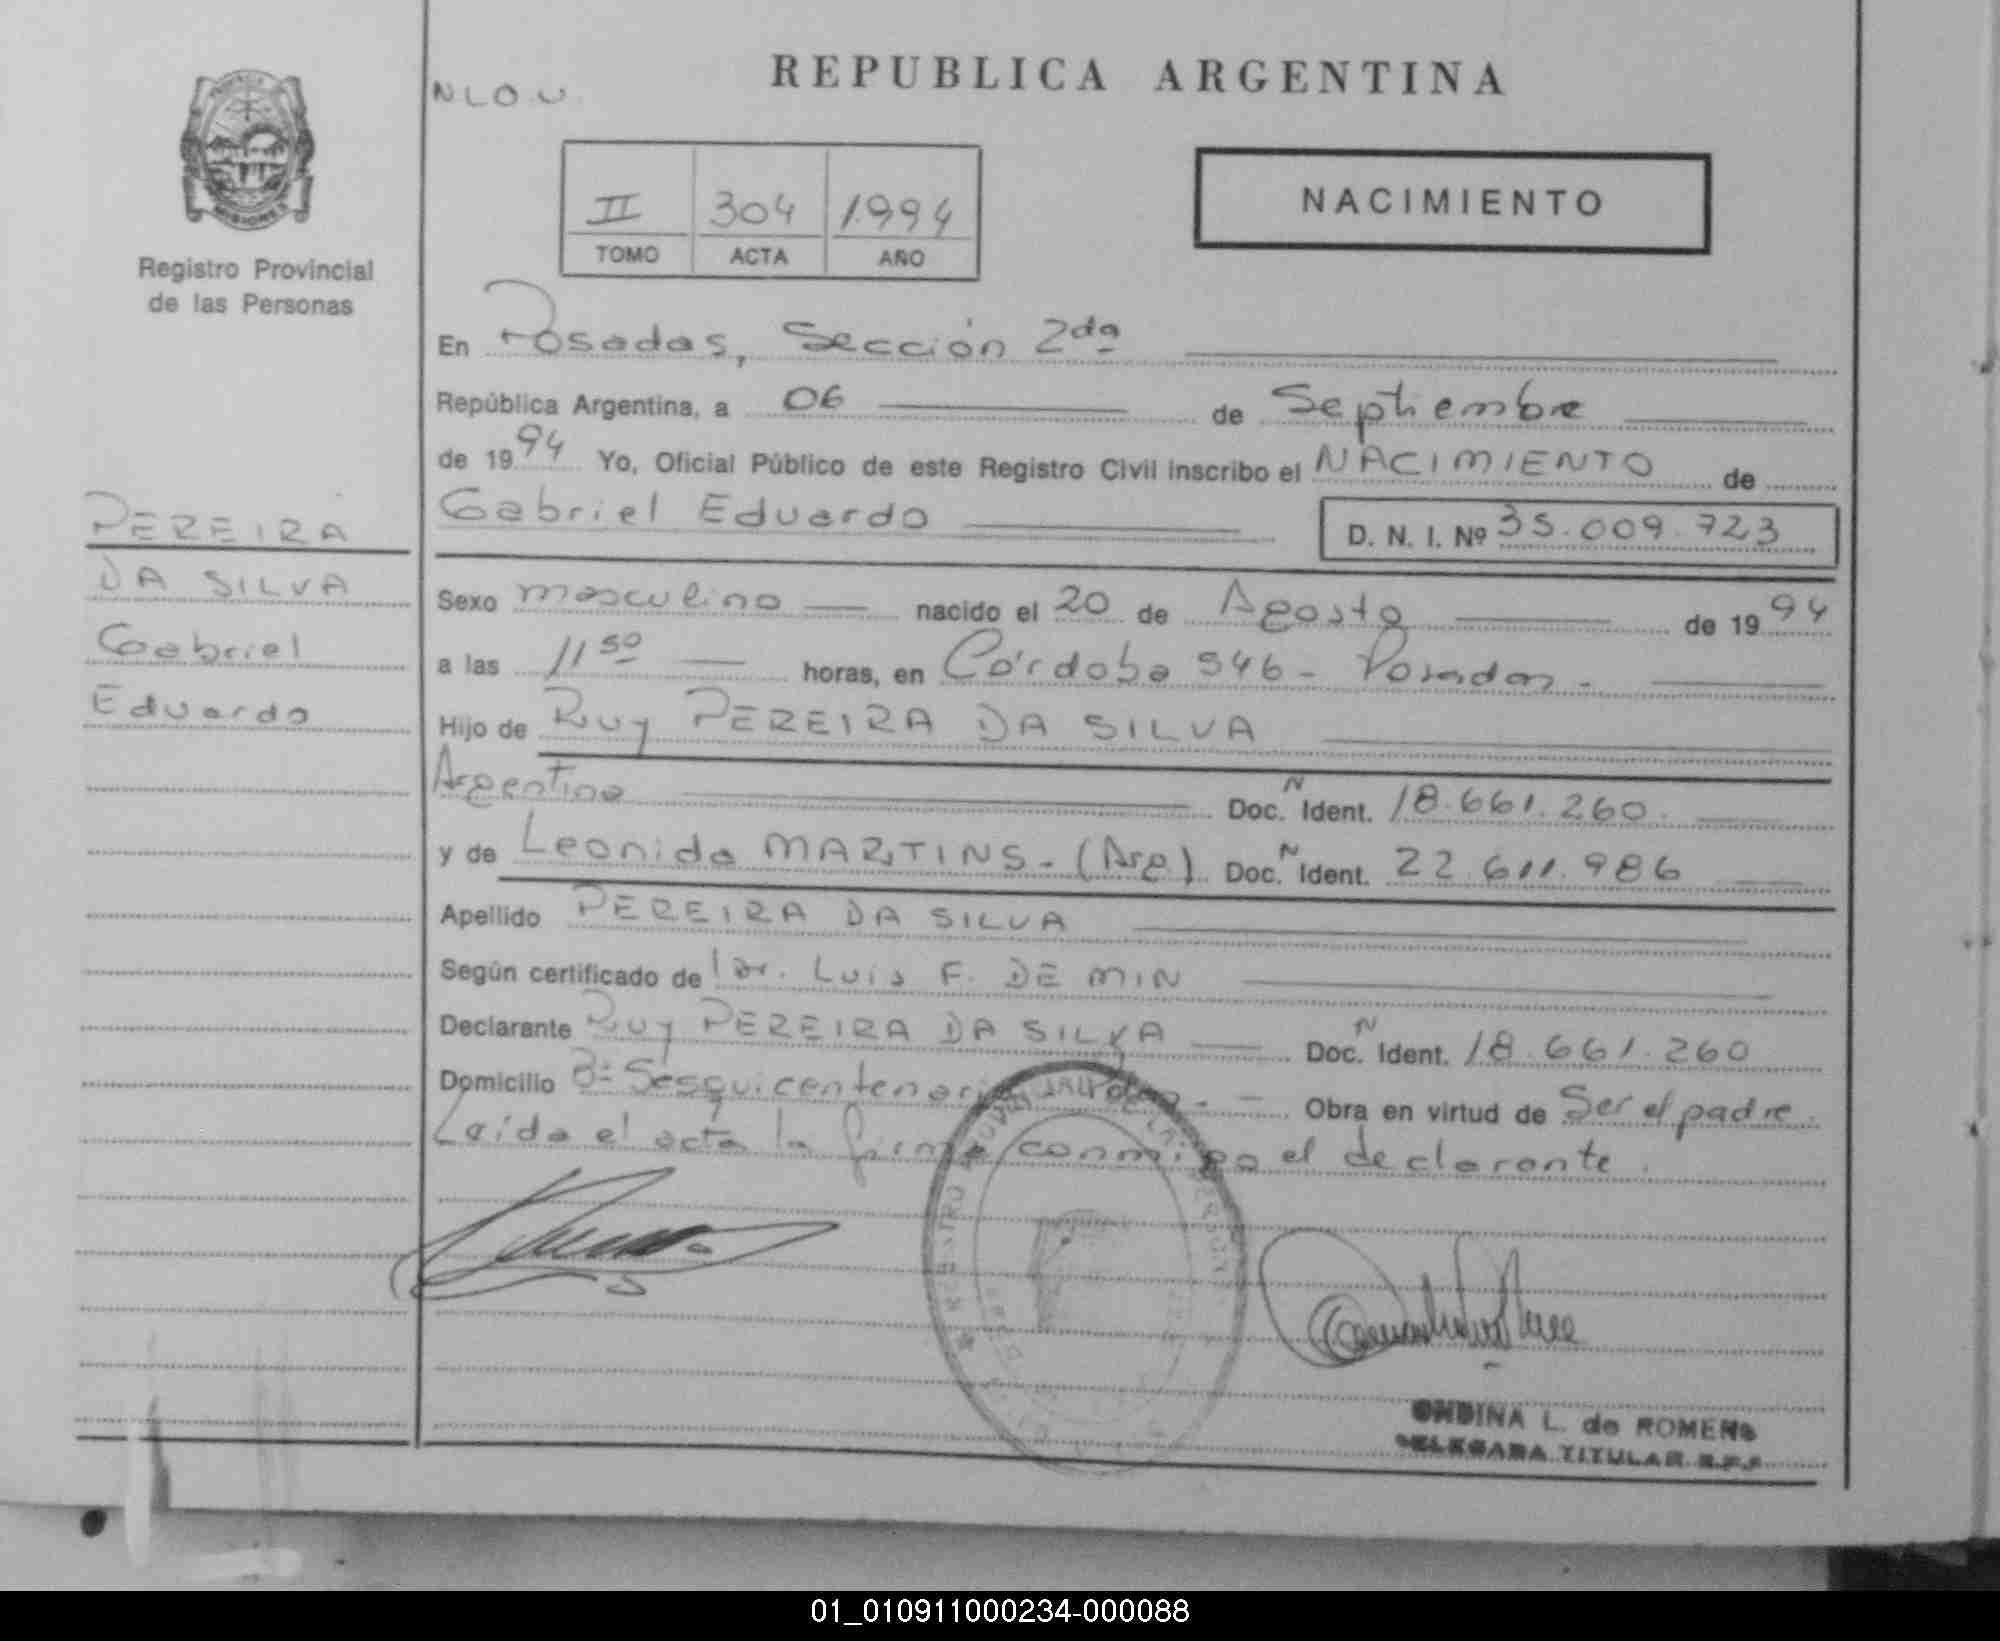 REPUBLICA ARGENTINA
N L O . U.
MISIONES
Registro Provincial
de las Personas
II 304 1994
TOMO ACTA AÑO
NACIMIENTO
En Posadas, Sección 2da
República Argentina, a 06 de Septiembre
de 1994 Yo, Oficial Público de este Registro Civil inscribo el NACIMIENTO de
Gabriel Eduardo D. N. I. Nº 35.009.723
PEREIRA
DA SILVA
Gabriel
Eduardo
Sexo masculino nacido el 20 de Agosto de 1994
a las 11 50 horas, en Córdoba 546 - Posadas -
Hijo de Ruy PEREIRA DA SILVA
Argentino Doc. N Ident. 18.661.260
y de Leonida MARTINS - (Arg) Doc. N Ident. 22.611.986
Apellido PEREIRA DA SILVA
Según certificado de Dr. Luis F. DE MIN
Declarante Ruy PEREIRA DA SILVA Doc. N Ident. 18.661.260
Domicilio Bº Sesquicentenario Pdas. - Obra en virtud de Ser el padre.
Leída el acta la firma conmigo el declarante.
ONDINA L. de ROMERO
DELEGADA TITULAR R.P.P.
01_010911000234-000088